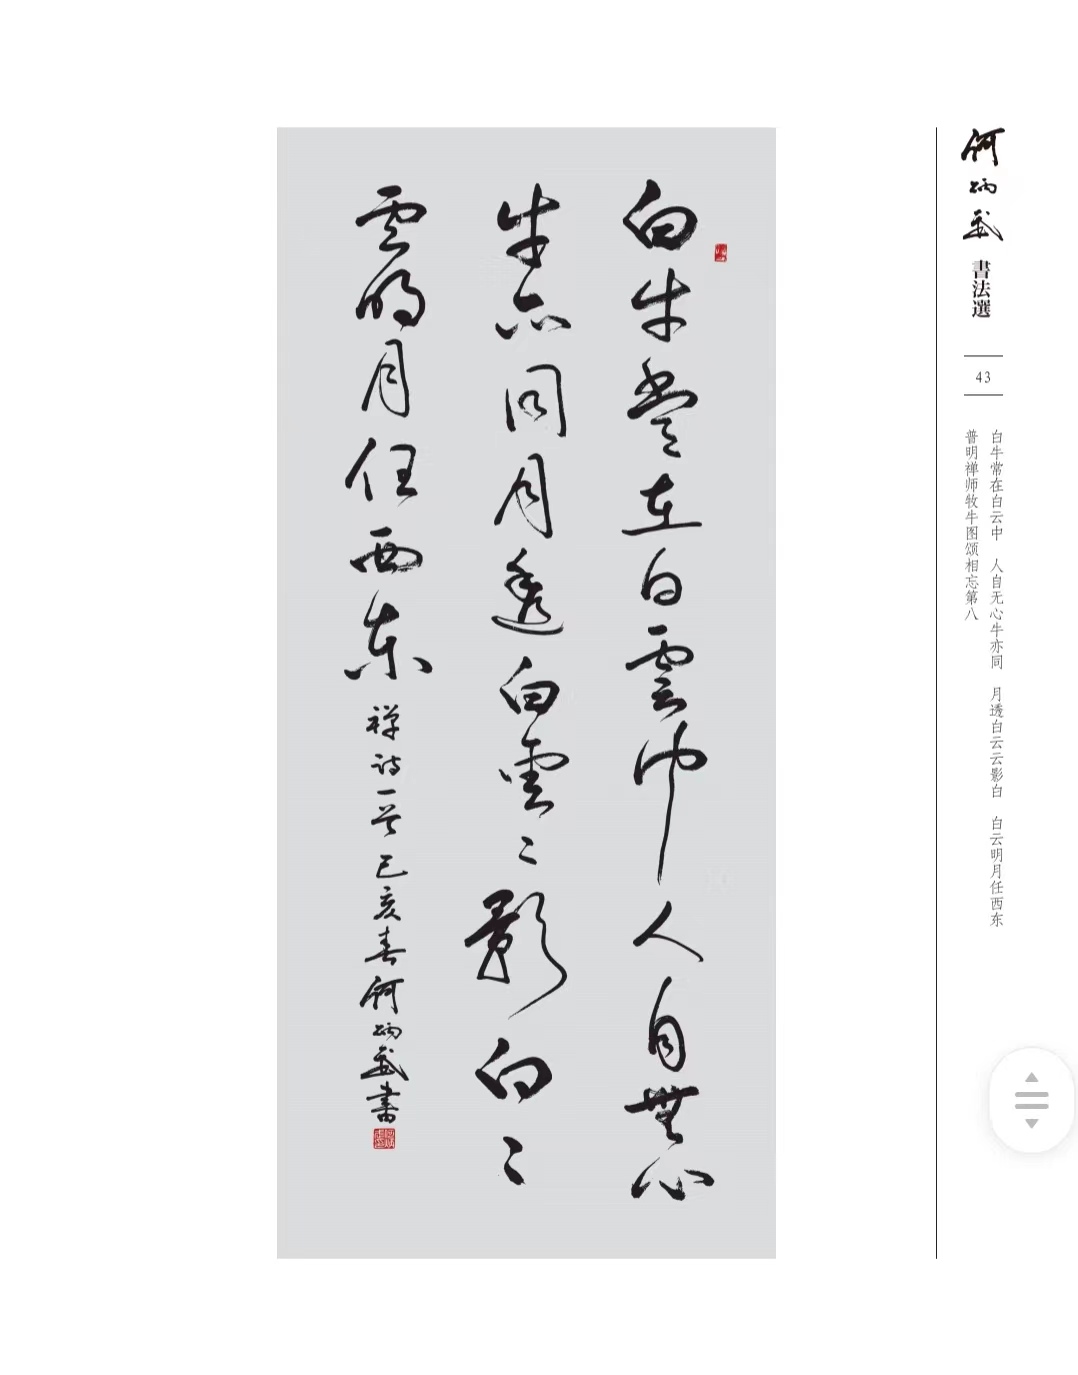 何炳武
書法選
43
白牛常在白云中　人自无心牛亦同　月透白云云影白　白云明月任西东
普明禅师牧牛图颂相忘第八
白牛常在白雲中人自無心
牛亦同月透白雲〻影白〻
雲明月任西东禅诗一首己亥春何炳武書